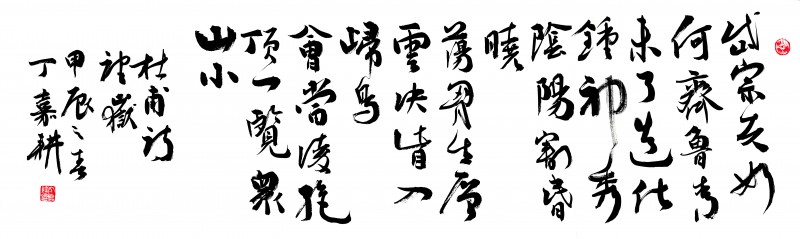 岱宗夫如
何齊魯青
未了造化
鍾神秀
陰陽割昏
曉
蕩胷生層
雲決眥入
歸鳥
會當凌絕
頂一覽眾
山小
杜甫詩
望嶽
甲辰之春
丁嘉耕